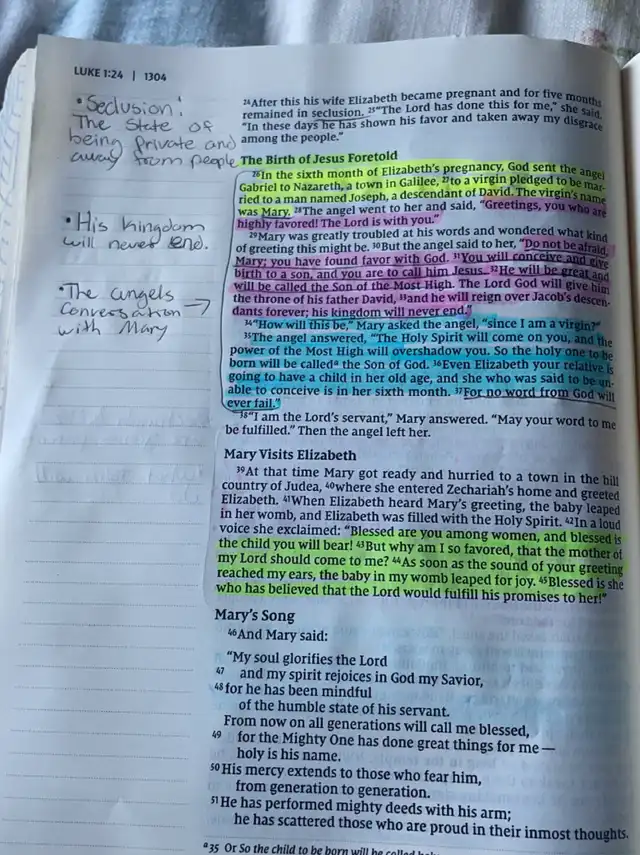 LUKE 1:24 | 1304
• Seclusion:
The state of
being private and
away from people
• His kingdom
will never end.
• The angels
conversation
with Mary
24After this his wife Elizabeth became pregnant and for five months
remained in seclusion. 25“The Lord has done this for me,” she said.
“In these days he has shown his favor and taken away my disgrace
among the people.”
The Birth of Jesus Foretold
26In the sixth month of Elizabeth’s pregnancy, God sent the angel
Gabriel to Nazareth, a town in Galilee, 27to a virgin pledged to be mar-
ried to a man named Joseph, a descendant of David. The virgin’s name
was Mary. 28The angel went to her and said, “Greetings, you who are
highly favored! The Lord is with you.”
29Mary was greatly troubled at his words and wondered what kind
of greeting this might be. 30But the angel said to her, “Do not be afraid,
Mary; you have found favor with God. 31You will conceive and give
birth to a son, and you are to call him Jesus. 32He will be great and
will be called the Son of the Most High. The Lord God will give him
the throne of his father David, 33and he will reign over Jacob’s descen-
dants forever; his kingdom will never end.”
34“How will this be,” Mary asked the angel, “since I am a virgin?”
35The angel answered, “The Holy Spirit will come on you, and the
power of the Most High will overshadow you. So the holy one to be
born will be calleda the Son of God. 36Even Elizabeth your relative is
going to have a child in her old age, and she who was said to be un-
able to conceive is in her sixth month. 37For no word from God will
ever fail.”
38“I am the Lord’s servant,” Mary answered. “May your word to me
be fulfilled.” Then the angel left her.
Mary Visits Elizabeth
39At that time Mary got ready and hurried to a town in the hill
country of Judea, 40where she entered Zechariah’s home and greeted
Elizabeth. 41When Elizabeth heard Mary’s greeting, the baby leaped
in her womb, and Elizabeth was filled with the Holy Spirit. 42In a loud
voice she exclaimed: “Blessed are you among women, and blessed is
the child you will bear! 43But why am I so favored, that the mother of
my Lord should come to me? 44As soon as the sound of your greeting
reached my ears, the baby in my womb leaped for joy. 45Blessed is she
who has believed that the Lord would fulfill his promises to her!”
Mary’s Song
46And Mary said:
“My soul glorifies the Lord
47 and my spirit rejoices in God my Savior,
48for he has been mindful
of the humble state of his servant.
From now on all generations will call me blessed,
49 for the Mighty One has done great things for me—
holy is his name.
50His mercy extends to those who fear him,
from generation to generation.
51He has performed mighty deeds with his arm;
he has scattered those who are proud in their inmost thoughts.
a35 Or So the child to be born will be called